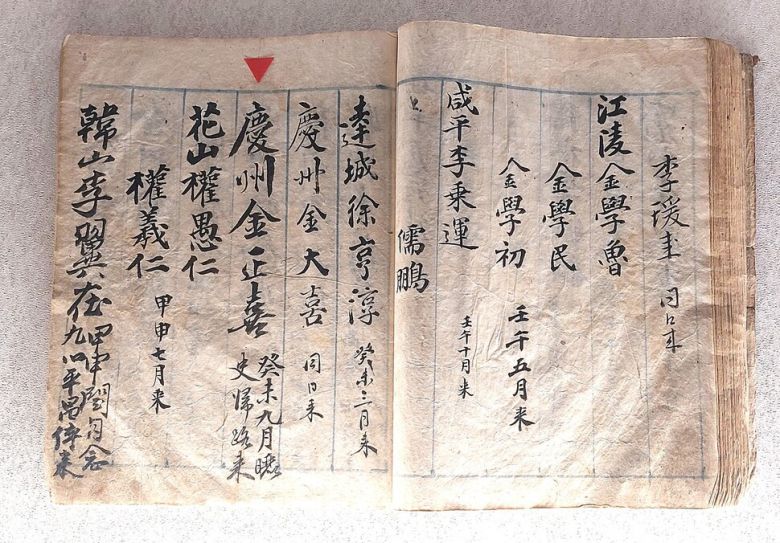 李瑗圭 同日来
江陵金學魯
金學民
金學初 壬午五月来
咸平李乗運 壬午十月来
儒鵬
達城徐亨淳 癸未三月来
慶州金大喜 同日来
慶州金正喜 癸未九月曬
史歸路来
花山權愚仁
權義仁 甲申七月来
韓山李翼在 甲申閏月念
九以平昌倅来